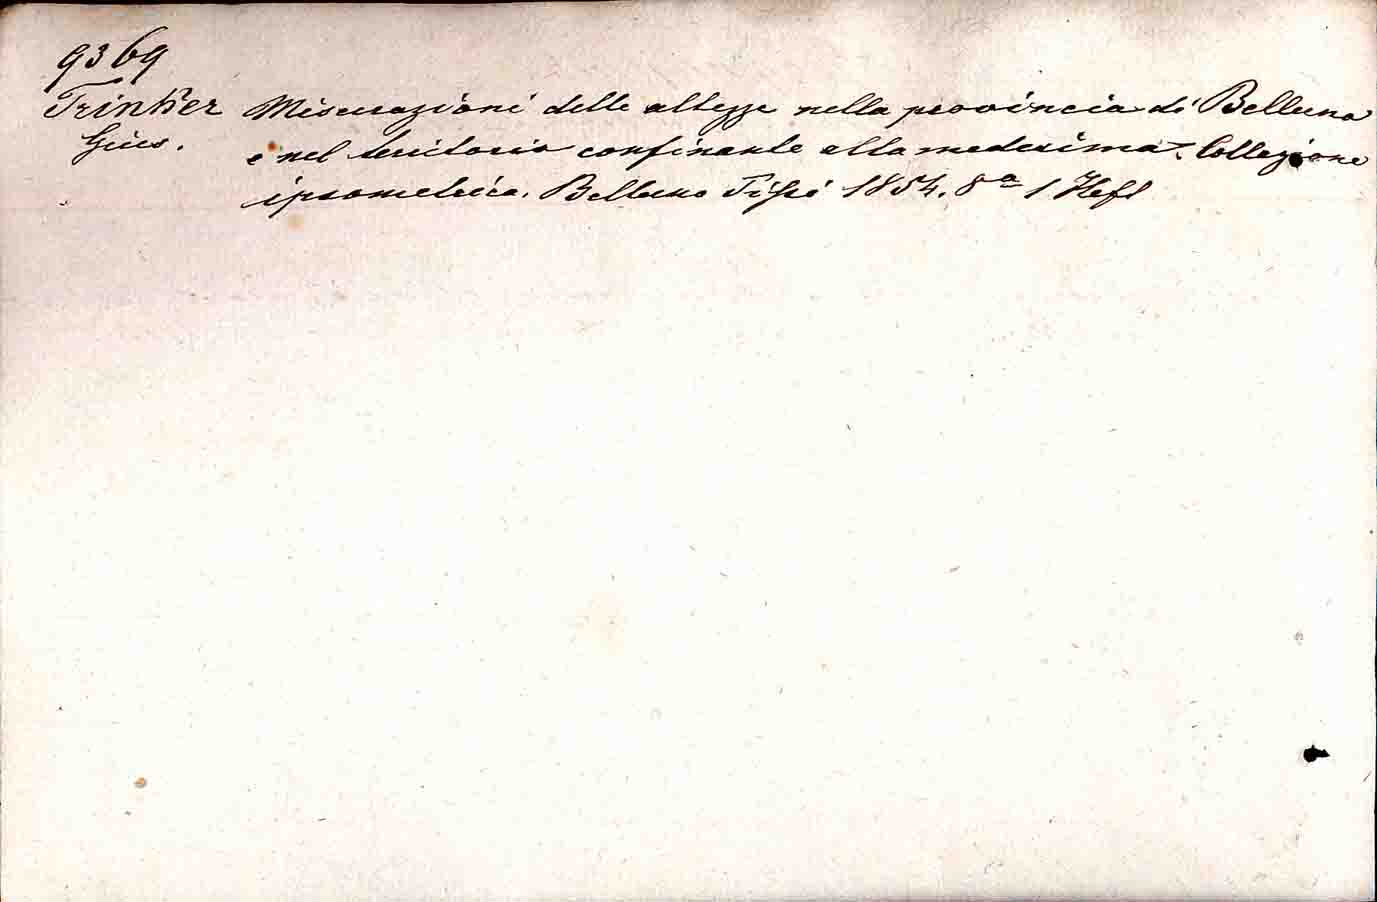 9369
Trinker Misurazioni delle altezze nella provincia di Belluno
Gius. e nel territorio confinante alla medesima. Collezione
ipsometrica. Belluno Tissi 1854. 8° 1 Heft